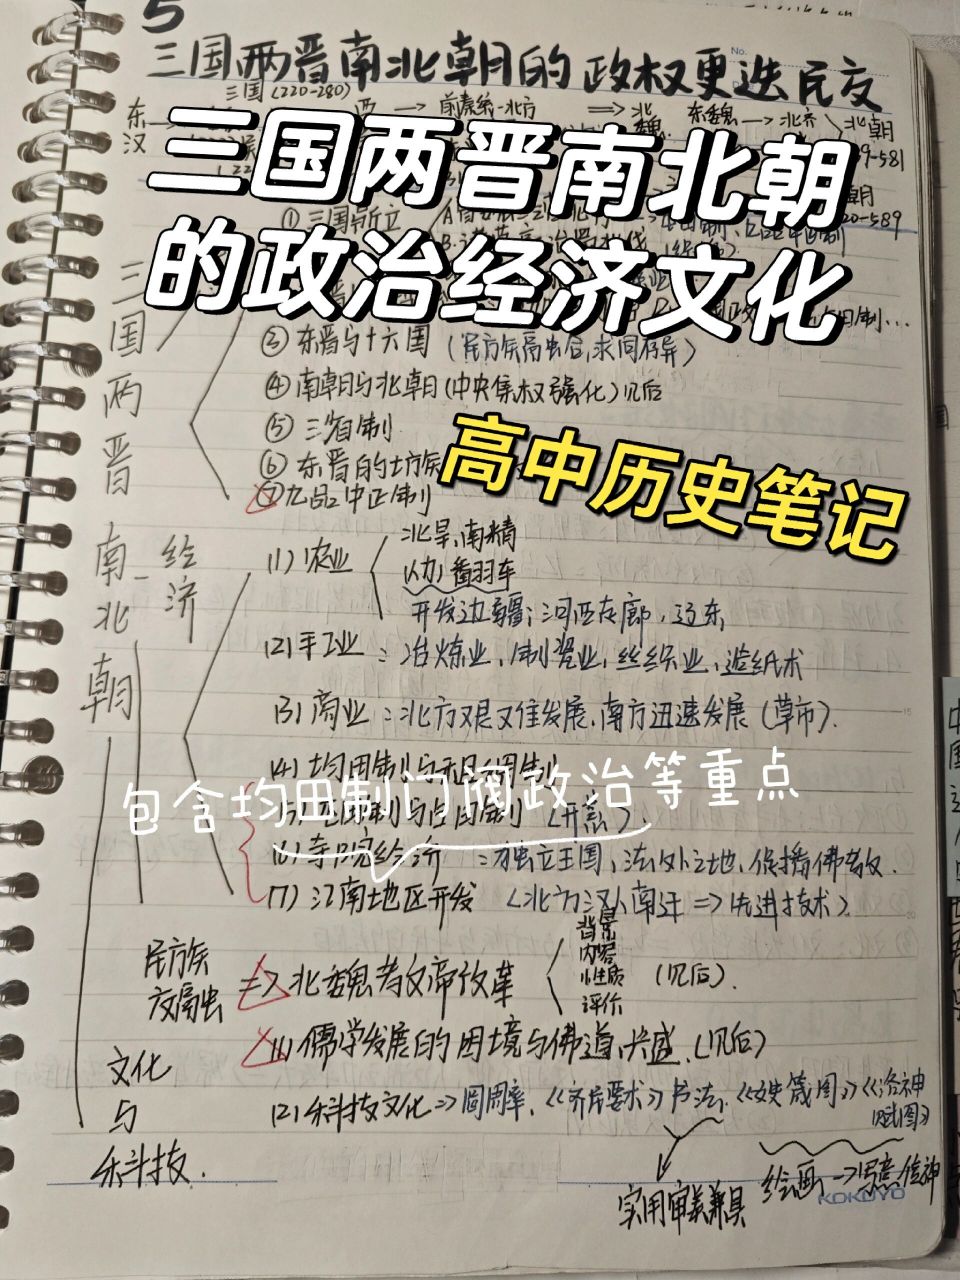 5
No.
三国两晋南北朝的政权更迭民交
三国(220-280)
东汉
西
→ 前秦统一北方
⇒ 北魏
东魏 → 北齐
北朝
-581
三国两晋南北朝
的政治经济文化
朝
-589
① 三国鼎立
三国两晋南北朝
③ 东晋与十六国 (民方族高虫合,求同存异)
④ 南朝与北朝 (中央集权强化) 见后
⑤ 三省制
⑥ 东晋的士族
⑦ 九品中正制
高中历史笔记
经济
(1) 农业
北旱,南精
翻羽车
开发边疆:河西走廊,辽东
(2) 手工业:冶炼业,制瓷业,丝织业,造纸术
(3) 商业:北方艰又佳发展,南方迅速发展 (草市).
(4) 均田制与租调制
包含均田制门阀政治等重点
与占田制
(6) 寺院经济:独立王国,法外之地,传播佛教.
(7) 江南地区开发 (北方汉人南迁 ⇒ 先进技术)
民方族交高虫
⇒ 北魏孝文帝改革
背景
内容
性质
评价
(见后).
文化与禾斗技.
(1) 儒学发展的困境与佛道兴盛.(见后)
(2) 禾斗技文化 ⇒ 圆周率,《齐民要术》书法,《女史箴图》《洛神赋图》
实用审美兼具
绘画 → 写意传神
KOKUYO